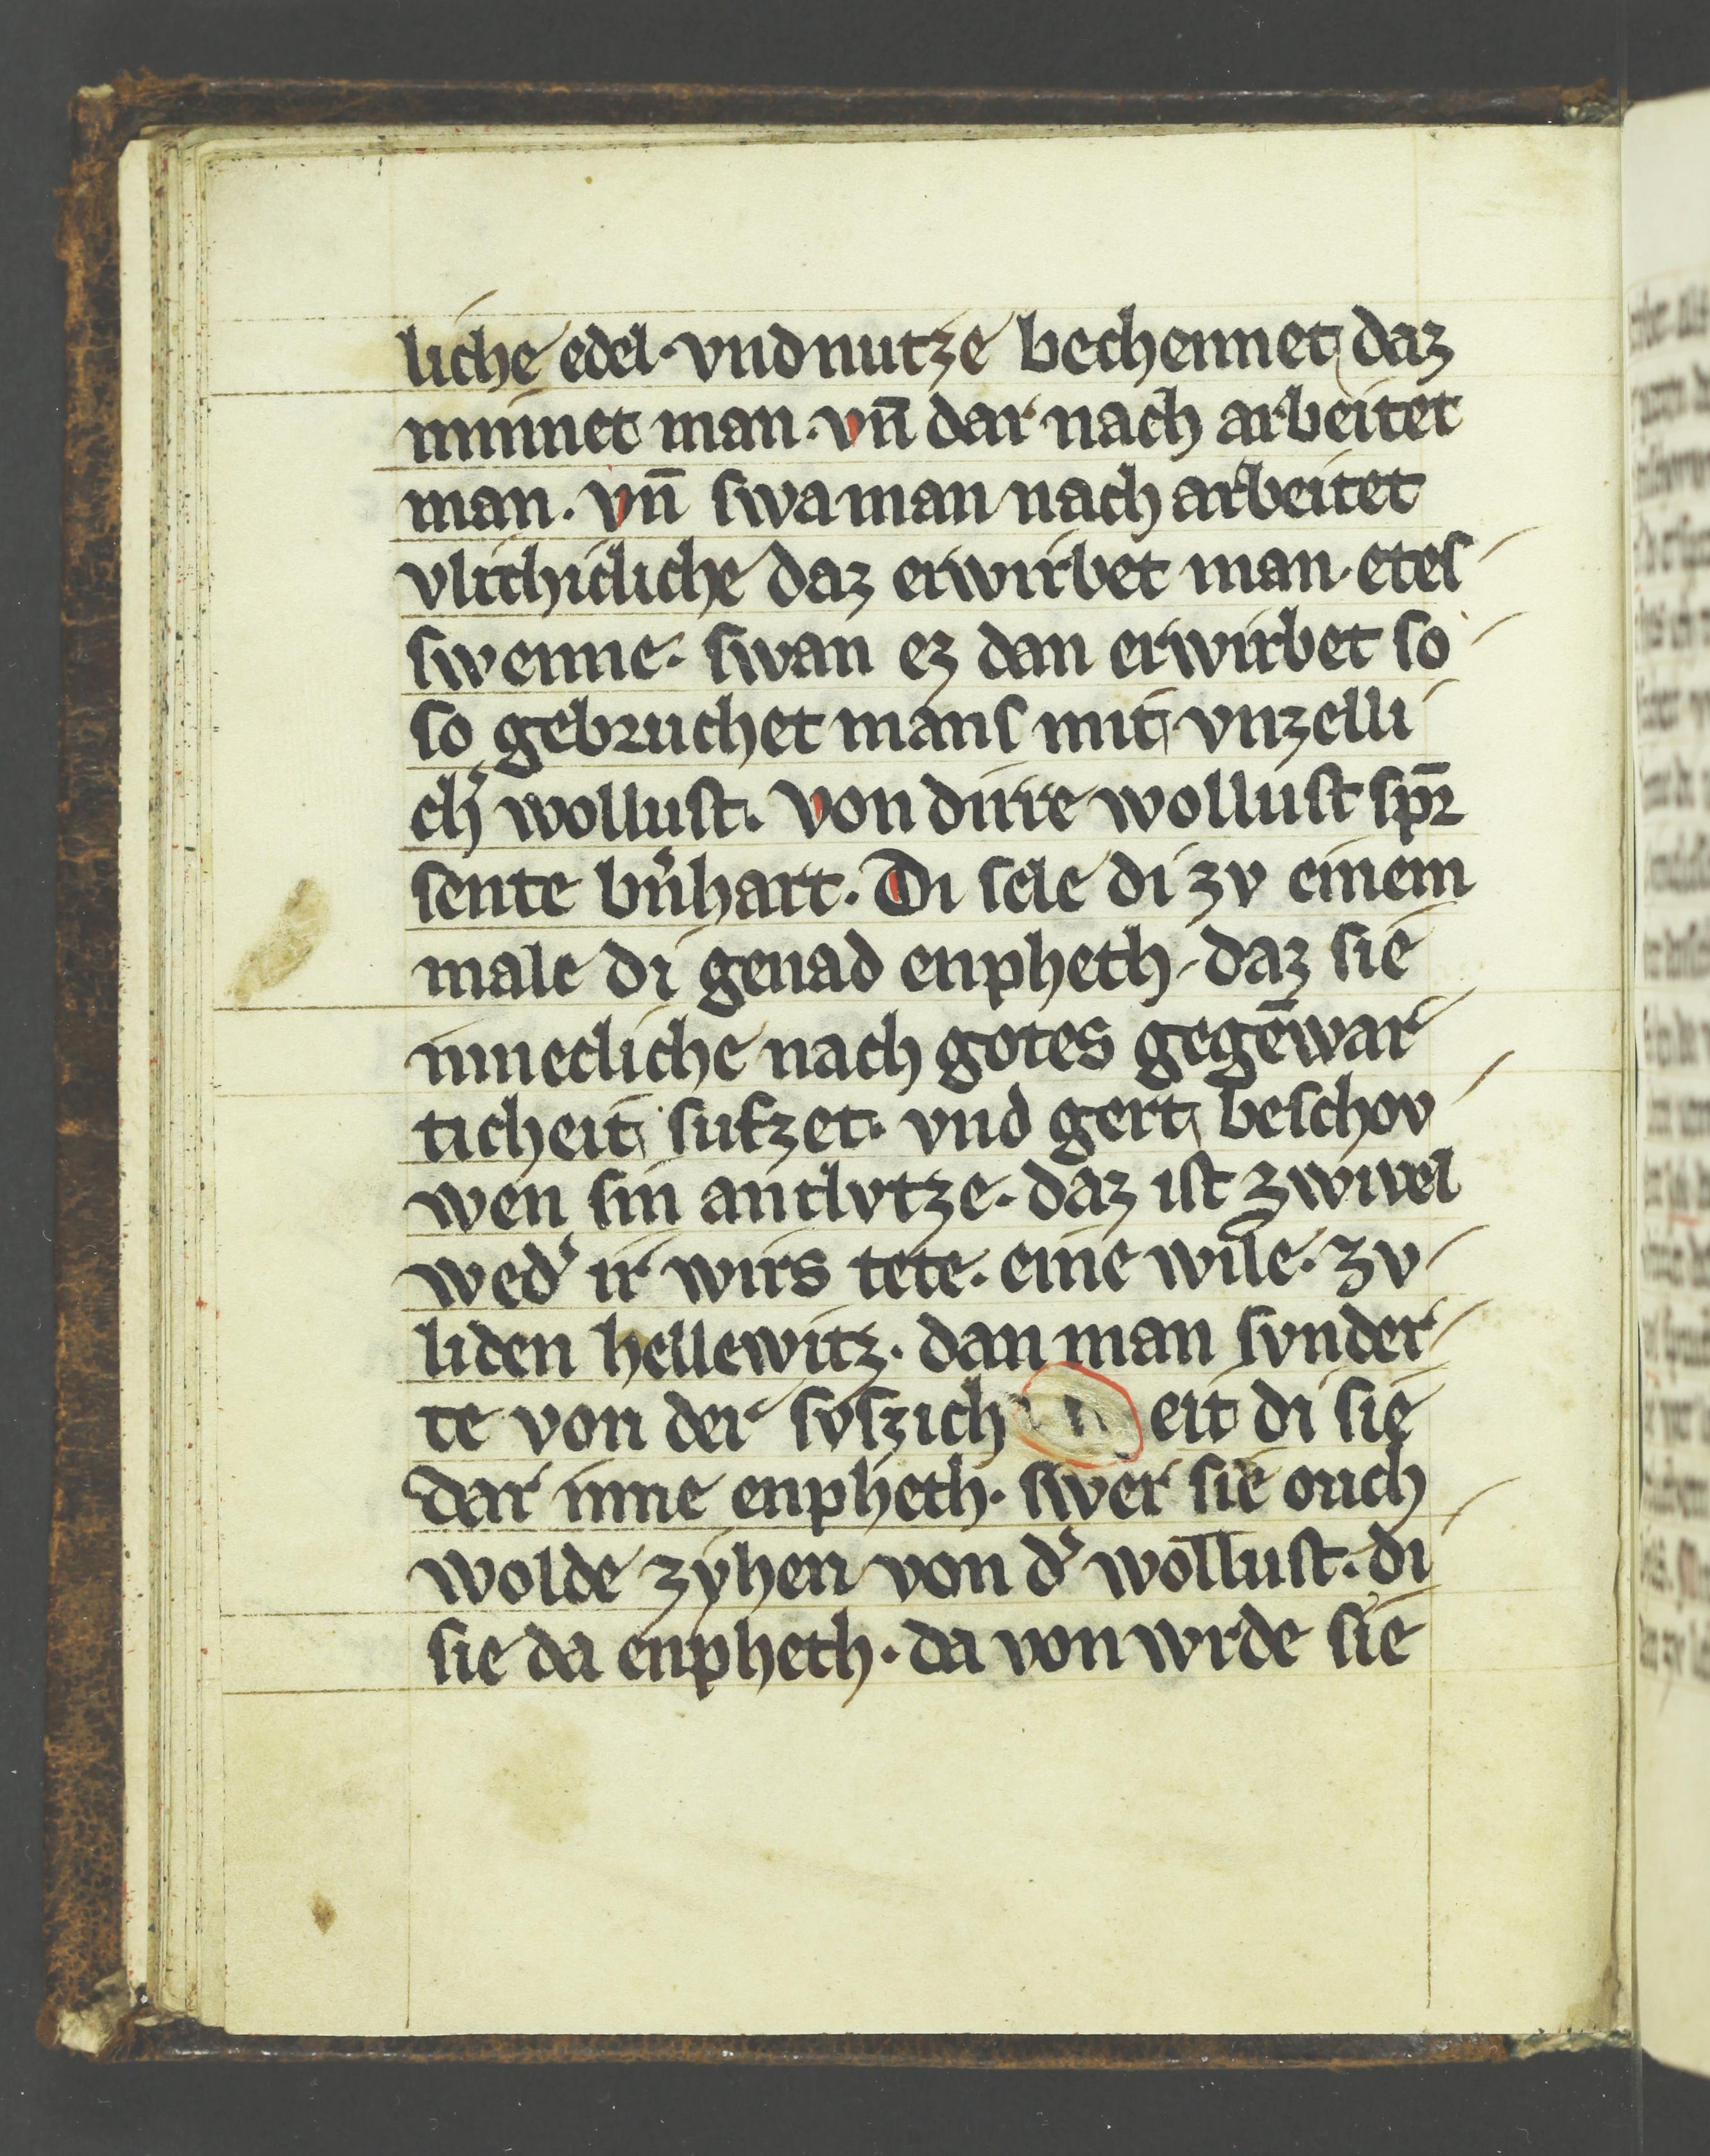 liche edel · vnd nutze bechennet daz
minnet man · vn̄ dar nach arbeitet
man · vn̄ swa man nach arbeitet
vlithicliche daz erwirbet man · etes
swenne · swan ez dan erwirbet so
so gebruchet mans mit vnzelli
ch͛ wollust · Von dirre wollust spꝛ̄
sente bn͛hart · Di sele di zv einem
male di genad enpheth · daz sie
innecliche nach gotes gegēwar
ticheit sufzet · vnd gert beschov
wen sin antlvtze · daz ist zwivel
wed͛ ir wirs tete · eine wile · zv
liden hellewitz · dan man svnder
te von der svszich eit di sie
dar inne enpheth · swer sie ouch
wolde zyhen von d͛ wollust · di
sie da enpheth · da von wrde sie